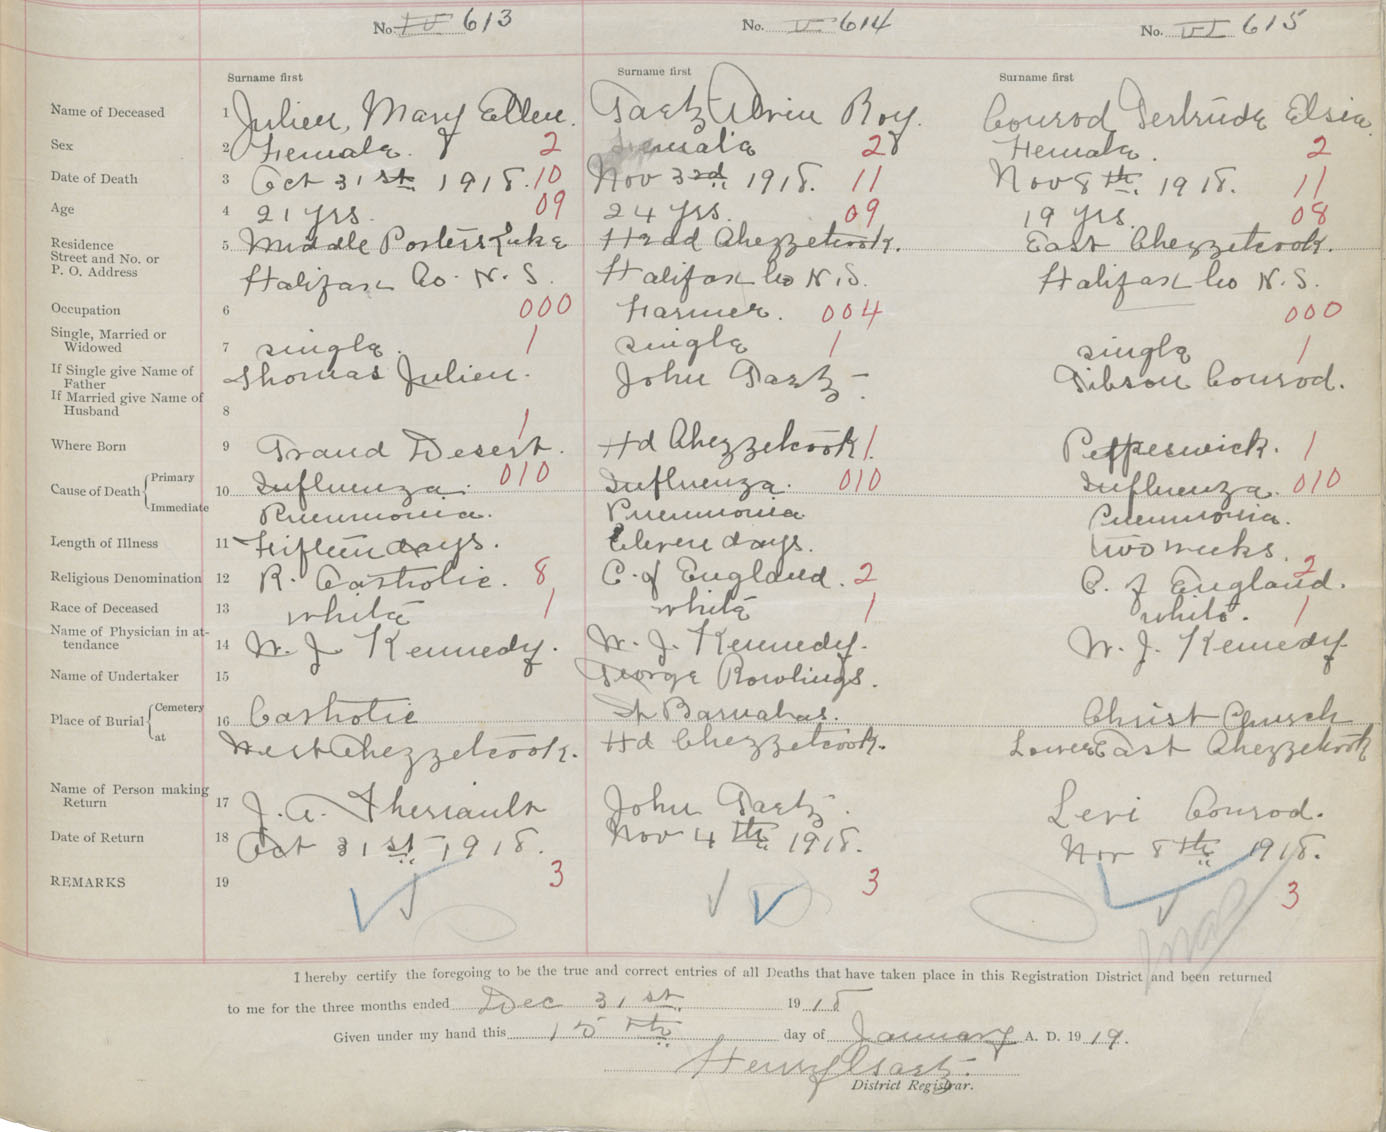 No. IV 613
No. V 614
No. VI 615
Surname first
Surname first
Surname first
Name of Deceased 1 Julien, Mary Ellen. Gaetz Alvin Roy. Conrod Gertrude Elsie.
Sex 2 Female. 2 Female 2 Female. 2
Date of Death 3 Oct 31st 1918. 10 Nov 3rd 1918. 11 Nov 8th 1918. 11
Age 4 21 yrs. 09 24 yrs. 09 19 yrs. 08
Residence 5 Middle Porters Lake Head Chezzetcook. East Chezzetcook.
Street and No. or
P. O. Address Halifax Co. N. S. Halifax Co N. S. Halifax Co N. S.
Occupation 6 000 Farmer. 004 000
Single, Married or
Widowed 7 single. 1 single 1 single 1
If Single give Name of
Father Thomas Julien. John Gaetz - Gibson Conrod.
If Married give Name of
Husband 8
Where Born 9 Grand Desert. 1 Hd Chezzetcook. 1 Petpeswick. 1
Cause of Death Primary 10 Influenza. 010 Influenza. 010 Influenza. 010
Immediate Pneumonia. Pneumonia Pneumonia.
Length of Illness 11 Fifteen days. Eleven days. two weeks.
Religious Denomination 12 R. Catholic. 8 C. of England. 2 C. of England. 2
Race of Deceased 13 white 1 white 1 white. 1
Name of Physician in at-
tendance 14 W. J. Kennedy. W. J. Kennedy. W. J. Kennedy.
Name of Undertaker 15 George Rowlings.
Place of Burial Cemetery 16 Catholic St Barnabas. Christ Church
at West Chezzetcook. Hd Chezzetcook. Lower East Chezzetcook
Name of Person making
Return 17 J. A. Theriault John Gaetz. Levi Conrod.
Date of Return 18 Oct 31st 1918. Nov 4th 1918. Nov 8th 1918.
REMARKS 19 3 3 3
I hereby certify the foregoing to be the true and correct entries of all Deaths that have taken place in this Registration District and been returned
to me for the three months ended Dec 31st 1918
Given under my hand this 15th day of January A. D. 1919.
Henry Gaetz.
District Registrar.